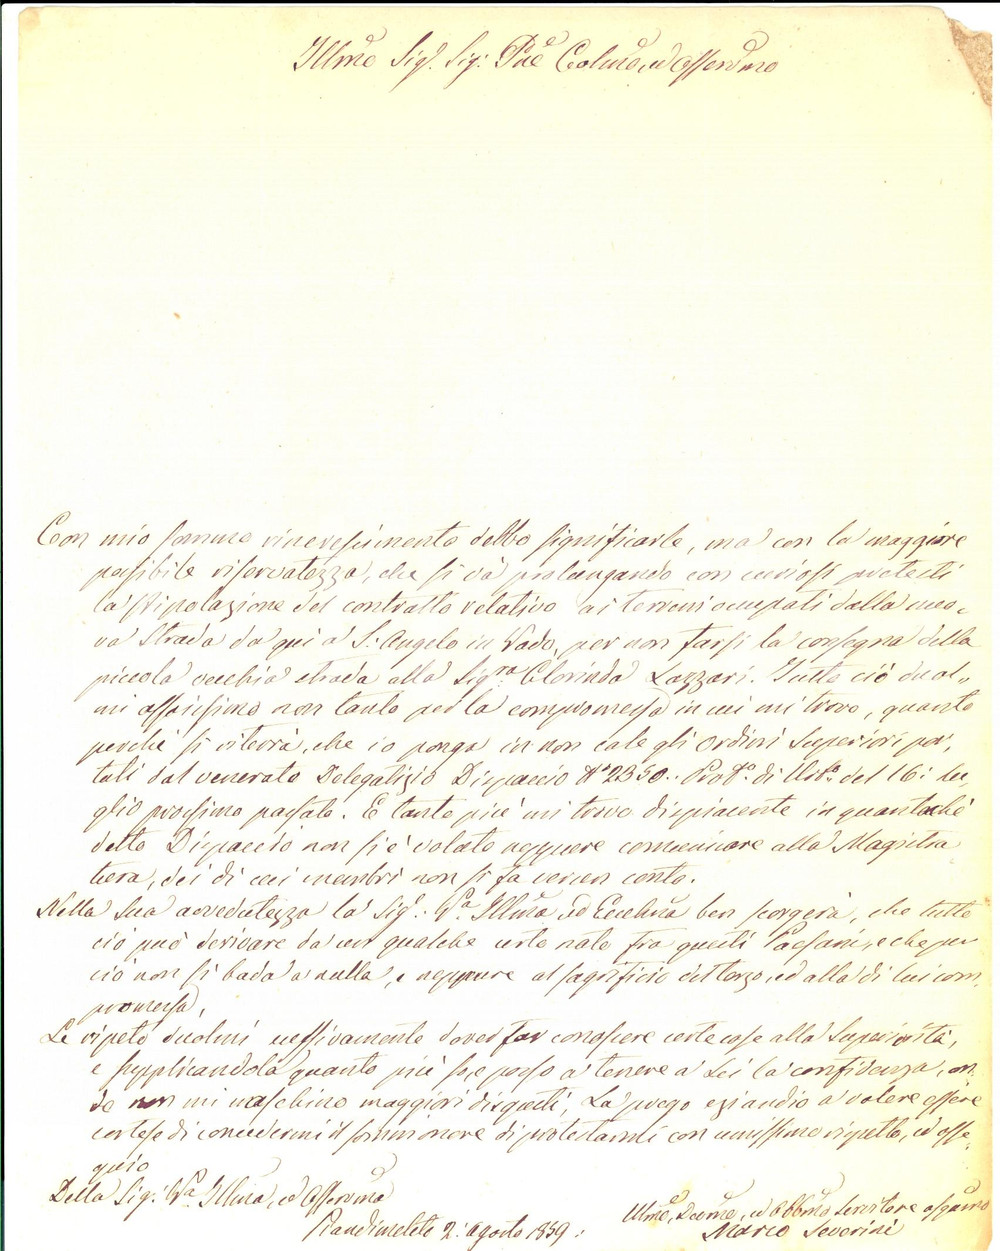 Illmo Sig. Sig: Pne Colmo, ed Ossermo
Con mio sommo rincrescimento debbo significarle, ma con la maggiore
possibile riservatezza, che si và prolungando con curiosi pretesti
la stipolazione del contratto relativo ai terreni occupati dalla nuo-
va Strada da qui a S. Angelo in Vado, per non farsi la consegna della
piccola vecchia strada alla Sigra Clorinda Lazzari. Tutto ciò duol-
mi assaissimo non tanto per la compromessa in cui mi trovo, quanto
perchè si riterrà, che io ponga in non cale gli Ordini Superiori por-
tati dal venerato Delegatizio Dispaccio No 2350. Proto. di del 16: Lu-
glio prossimo passato. E tanto più mi trovo dispiacente in quantochè
detto Dispaccio non si è voluto neppure comunicare alla Magistra
tura, dei di cui membri non si fa verun conto.
Nella sua avvedutezza la Sig. Va. Illma ed Eccelma ben scorgerà, che tutto
ciò può derivare da un qualche urto nato fra questi Paesani, e che per
ciò non si bada a nulla, e neppure al sagrifizio del terzo, ed alla di lui com-
promessa.
Le ripeto duolmi eccessivamente dover far conoscere certe cose alla Superiorità,
e supplicandola quanto più so, e posso a tenere a Sei la confidenza, on-
de non mi naschino maggiori disgusti, La prego eziandio a volere essere
cortese di concedermi il sommo onore di protestarmi con umissimo rispetto, ed osse-
quio
Della Sig: Va. Illma, ed Ossermo
Piandimeleto 2. Agosto 1859.
Umo, Devmo, ed Obbmo Servitore ossequmo
Marco Severini